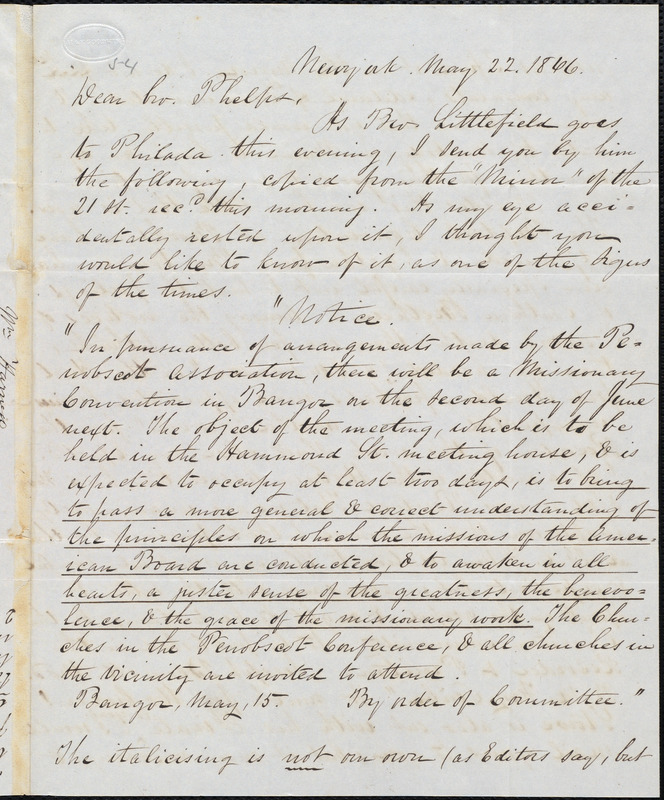 5-4
New york. May 22. 1846.
Dear bro. Phelps,
As Bro. Littlefield goes
to Philada. this evening, I send you by him
the following, copied from the "Mirror" of the
21 st. recd. this morning. As my eye acci-
dentally rested upon it, I thought you
would like to know of it, as one of the signs
of the times.
"Notice.
"In pursuance of arrangements made by the Pe-
nobscot Association, there will be a Missionary
Convention in Bangor on the second day of June
next. The object of the meeting, which is to be
held in the Hammond St. meeting house, & is
expected to occupy at least two days, is to bring
to pass a more general & correct understanding of
the principles on which the missions of the Amer-
ican Board are conducted, & to awaken in all
hearts, a juster sense of the greatness, the benevo-
lence, & the grace of the missionary work. The Chur-
ches in the Penobscot Conference, & all churches in
the vicinity are invited to attend.
Bangor, May, 15. By order of Committee."
The italicising is not our own (as Editors say, but